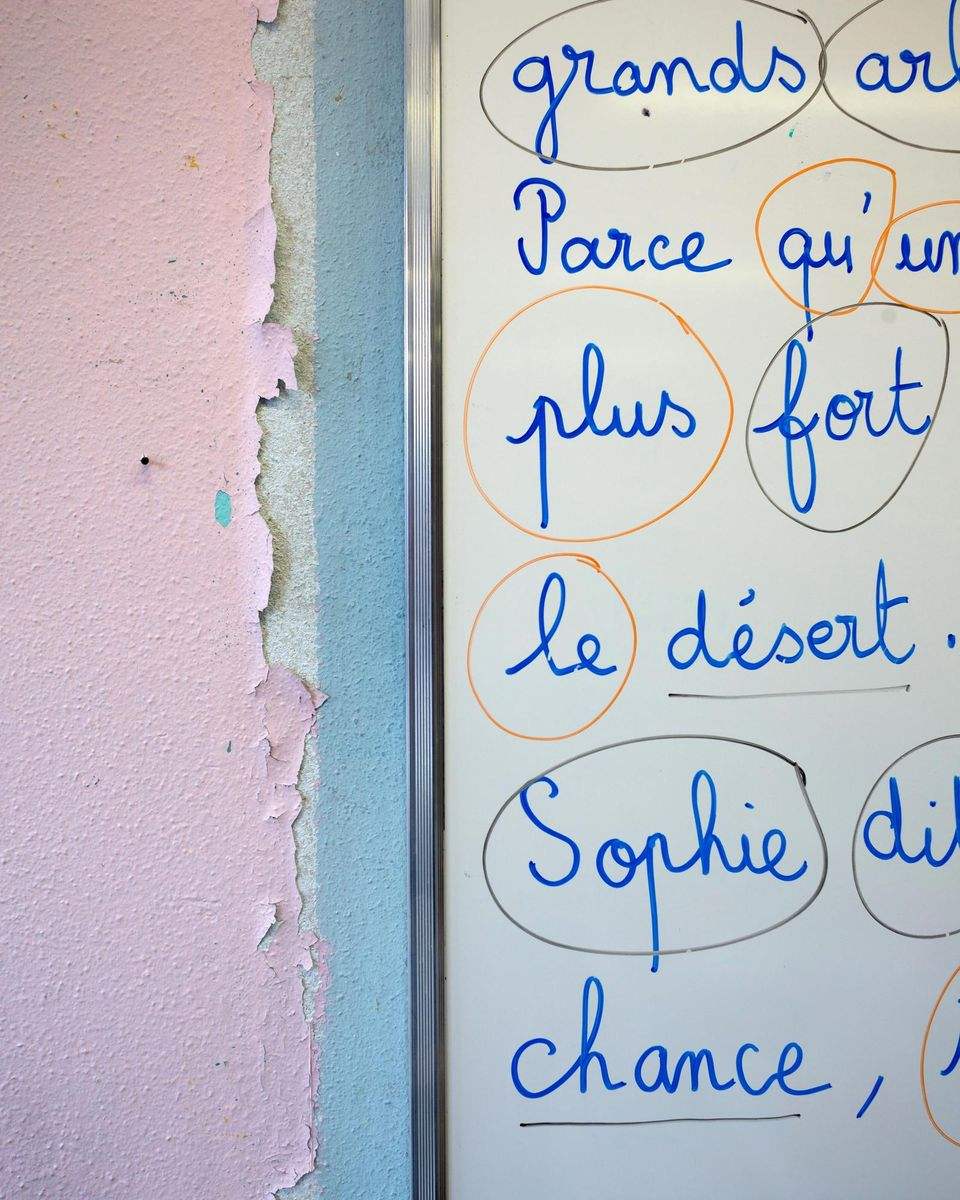 grands
Parce qu'un
plus fort
le désert.
Sophie
chance,